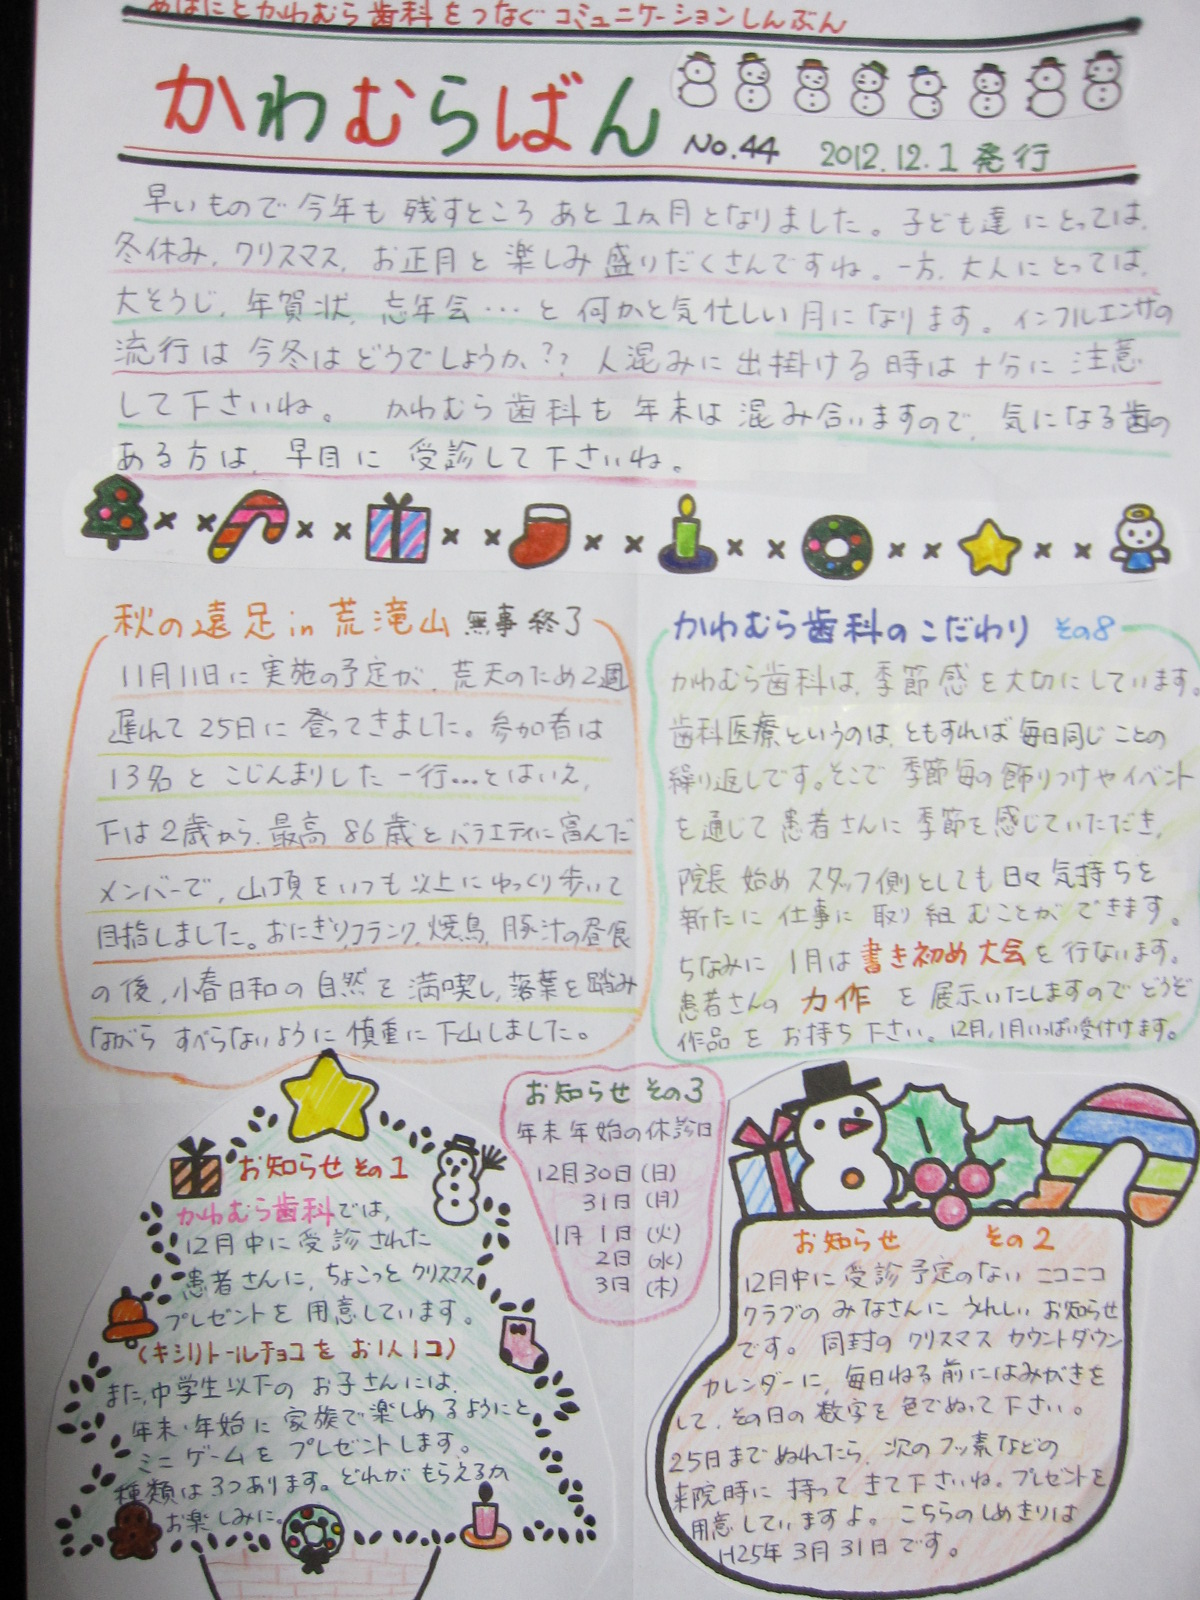 かわむら歯科をつなぐコミュニケーションしんぶん
かわむらばん
No.44 2012.12.1発行
早いもので今年も残すところあと1ヵ月となりました。子ども達にとっては、
冬休み、クリスマス、お正月と楽しみ盛りだくさんですね。一方、大人にとっては、
大そうじ、年賀状、忘年会…と何かと気忙しい月になります。インフルエンザの
流行は今冬はどうでしょうか、?? 人混みに出掛ける時は十分に注意
して下さいね。 かわむら歯科も年末は混み合いますので、気になる歯の
ある方は、早目に受診して下さいね。
秋の遠足in荒滝山 無事終了
11月11日に実施の予定が、荒天のため2週
遅れて25日に登ってきました。参加者は
13名とこじんまりした一行…とはいえ、
下は2歳から、最高86歳とバラエティに富んだ
メンバーで、山頂をいつも以上にゆっくり歩いて
目指しました。おにぎり、フランク、焼鳥、豚汁の昼食
の後、小春日和の自然を満喫し、落葉を踏み
ながらすべらないように慎重に下山しました。
かわむら歯科のこだわり その8
かわむら歯科は、季節感を大切にしています。
歯科医療というのは、ともすれば毎日同じことの
繰り返しです。そこで季節毎の飾りつけやイベント
を通じて患者さんに季節を感じていただき、
院長始めスタッフ側としても日々気持ちを
新たに仕事に取り組むことができます。
ちなみに1月は書き初め大会を行ないます。
患者さんの力作を展示いたしますのでどうぞ
作品をお持ち下さい。12月、1月いっぱい受付けます。
お知らせその1
かわむら歯科では、
12月中に受診された
患者さんに、ちょこっとクリスマス
プレゼントを用意しています。
(キシリトールチョコをお1人1コ)
また、中学生以下のお子さんには、
年末・年始に家族で楽しめるようにと
ミニゲームをプレゼントします。
種類は3つあります。どれがもらえるか
お楽しみに。
お知らせその3
年末年始の休診日
12月30日(日)
31日(月)
1月1日(火)
2日(水)
3日(木)
お知らせ その2
12月中に受診予定のないニコニコ
クラブのみなさんにうれしいお知らせ
です。同封のクリスマスカウントダウン
カレンダーに、毎日ねる前にはみがきを
して、その日の数字を色でぬって下さい。
25日までぬれたら、次のフッ素などの
来院時に持ってきて下さいね。プレゼントを
用意していますよ。こちらのしめきりは
H25年3月31日です。